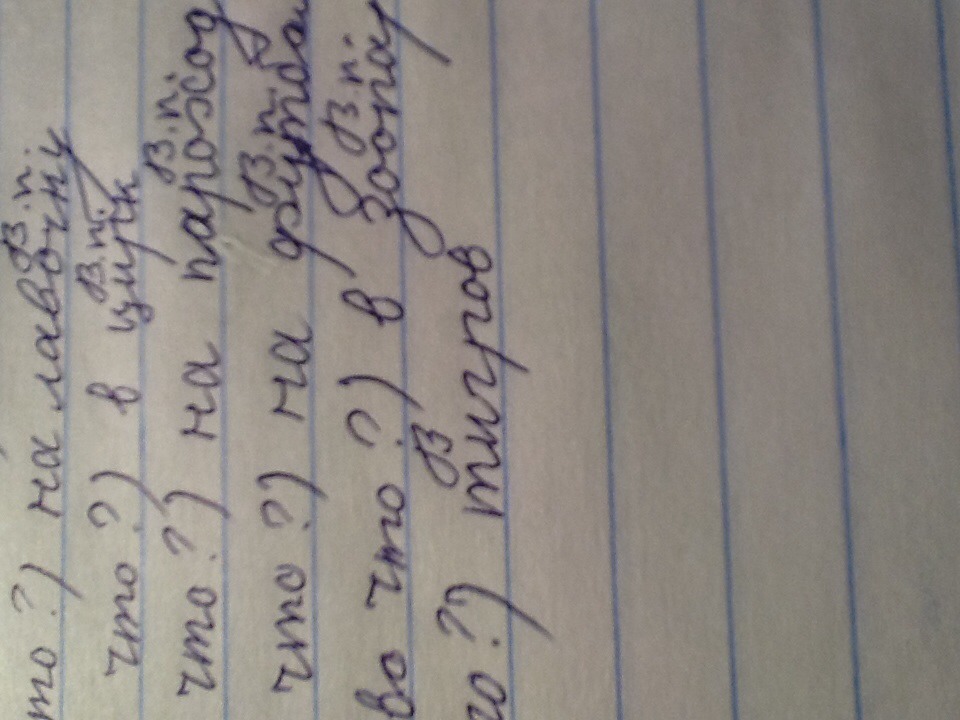 В.п.
то?) на лавочку
В.п.
что?) в цирк
В.п.
что?) на пароход
В.п.
что?) на футбол
В.п.
во что?) в зоопар
В
го?) тигров